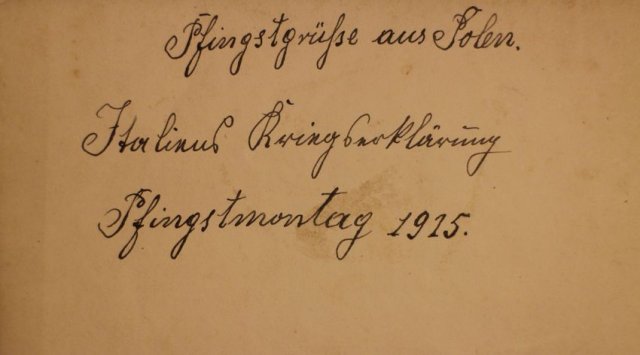 Pfingstgrüße aus Polen.
Italiens Kriegserklärung
Pfingstmontag 1915.